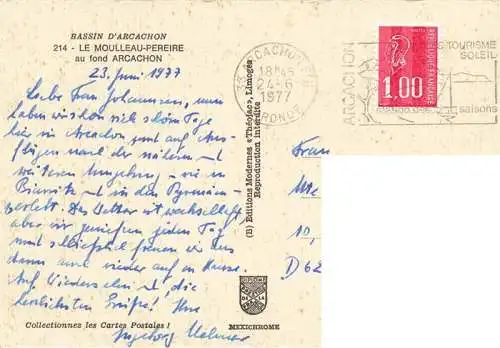 BASSIN D'ARCACHON
214 - LE MOULLEAU-PEREIRE
au fond ARCACHON
23. Juni 1977
Liebe Frau Johannsen, nun
haben wir schon sich schöne Tage
hier in Arcachon und auf Aus-
flügen nach der näheren und
weiteren Umgebung - wie in
Biarritz und in den Pyrenäen
verlebt. Das Wetter ist wechselhaft
aber wir genießen jeden Tag
und schließlich freuen wir uns
dann auch wieder auf zu Hause.
Auf Wiedersehen und die
herzlichsten Grüße! Ihre
Ingeborg
Collectionnez les Cartes Postales !
(B) Editions Modernes «Théojac», Limoges
Reproduction interdite
MEXICHROME
33 ARCACHON
18H45
24-6
1977
GIRONDE
ARCACHON
TOURISME
SOLEIL
saisons
1,00
REPUBLIQUE FRANÇAISE
POSTES
Frau
10,
D 62